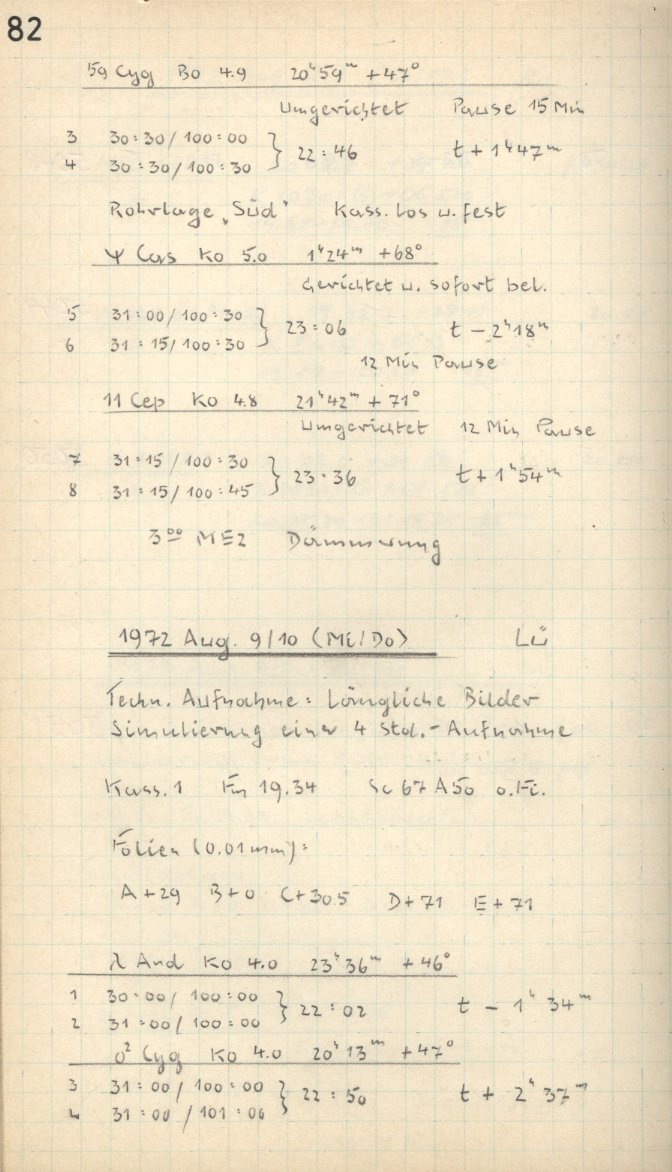 82
59 Cyg B0 4.9 20ʰ59ᵐ +47°
Umgerichtet Pause 15 Min
3 30:30/100:00
4 30:30/100:30 } 22:46 t+1ʰ47ᵐ
Rohrlage „Süd" Kass. los u. fest
ψ Cas K0 5.0 1ʰ24ᵐ +68°
Gerichtet u. sofort bel.
5 31:00/100:30
6 31:15/100:30 } 23:06 t-2ʰ18ᵐ
12 Min Pause
11 Cep K0 4.8 21ʰ42ᵐ +71°
Umgerichtet 12 Min Pause
7 31:15/100:30
8 31:15/100:45 } 23:36 t+1ʰ54ᵐ
3⁰⁰ MEZ Dämmerung
1972 Aug. 9/10 (Mi/Do) Lü
Techn. Aufnahme: Längliche Bilder
Simulierung einer 4 Std.-Aufnahme
Kass. 1 19.34 Sc 67 A50 o.Fi.
Folien (0.01mm):
A+29 B+0 C+30.5 D+71 E+71
λ And K0 4.0 23ʰ36ᵐ +46°
1 30:00/100:00
2 31:00/100:00 } 22:02 t - 1ʰ 34ᵐ
o² Cyg K0 4.0 20ʰ13ᵐ +47°
3 31:00/100:00
4 31:00/101:00 } 22:50 t + 2ʰ 37ᵐ